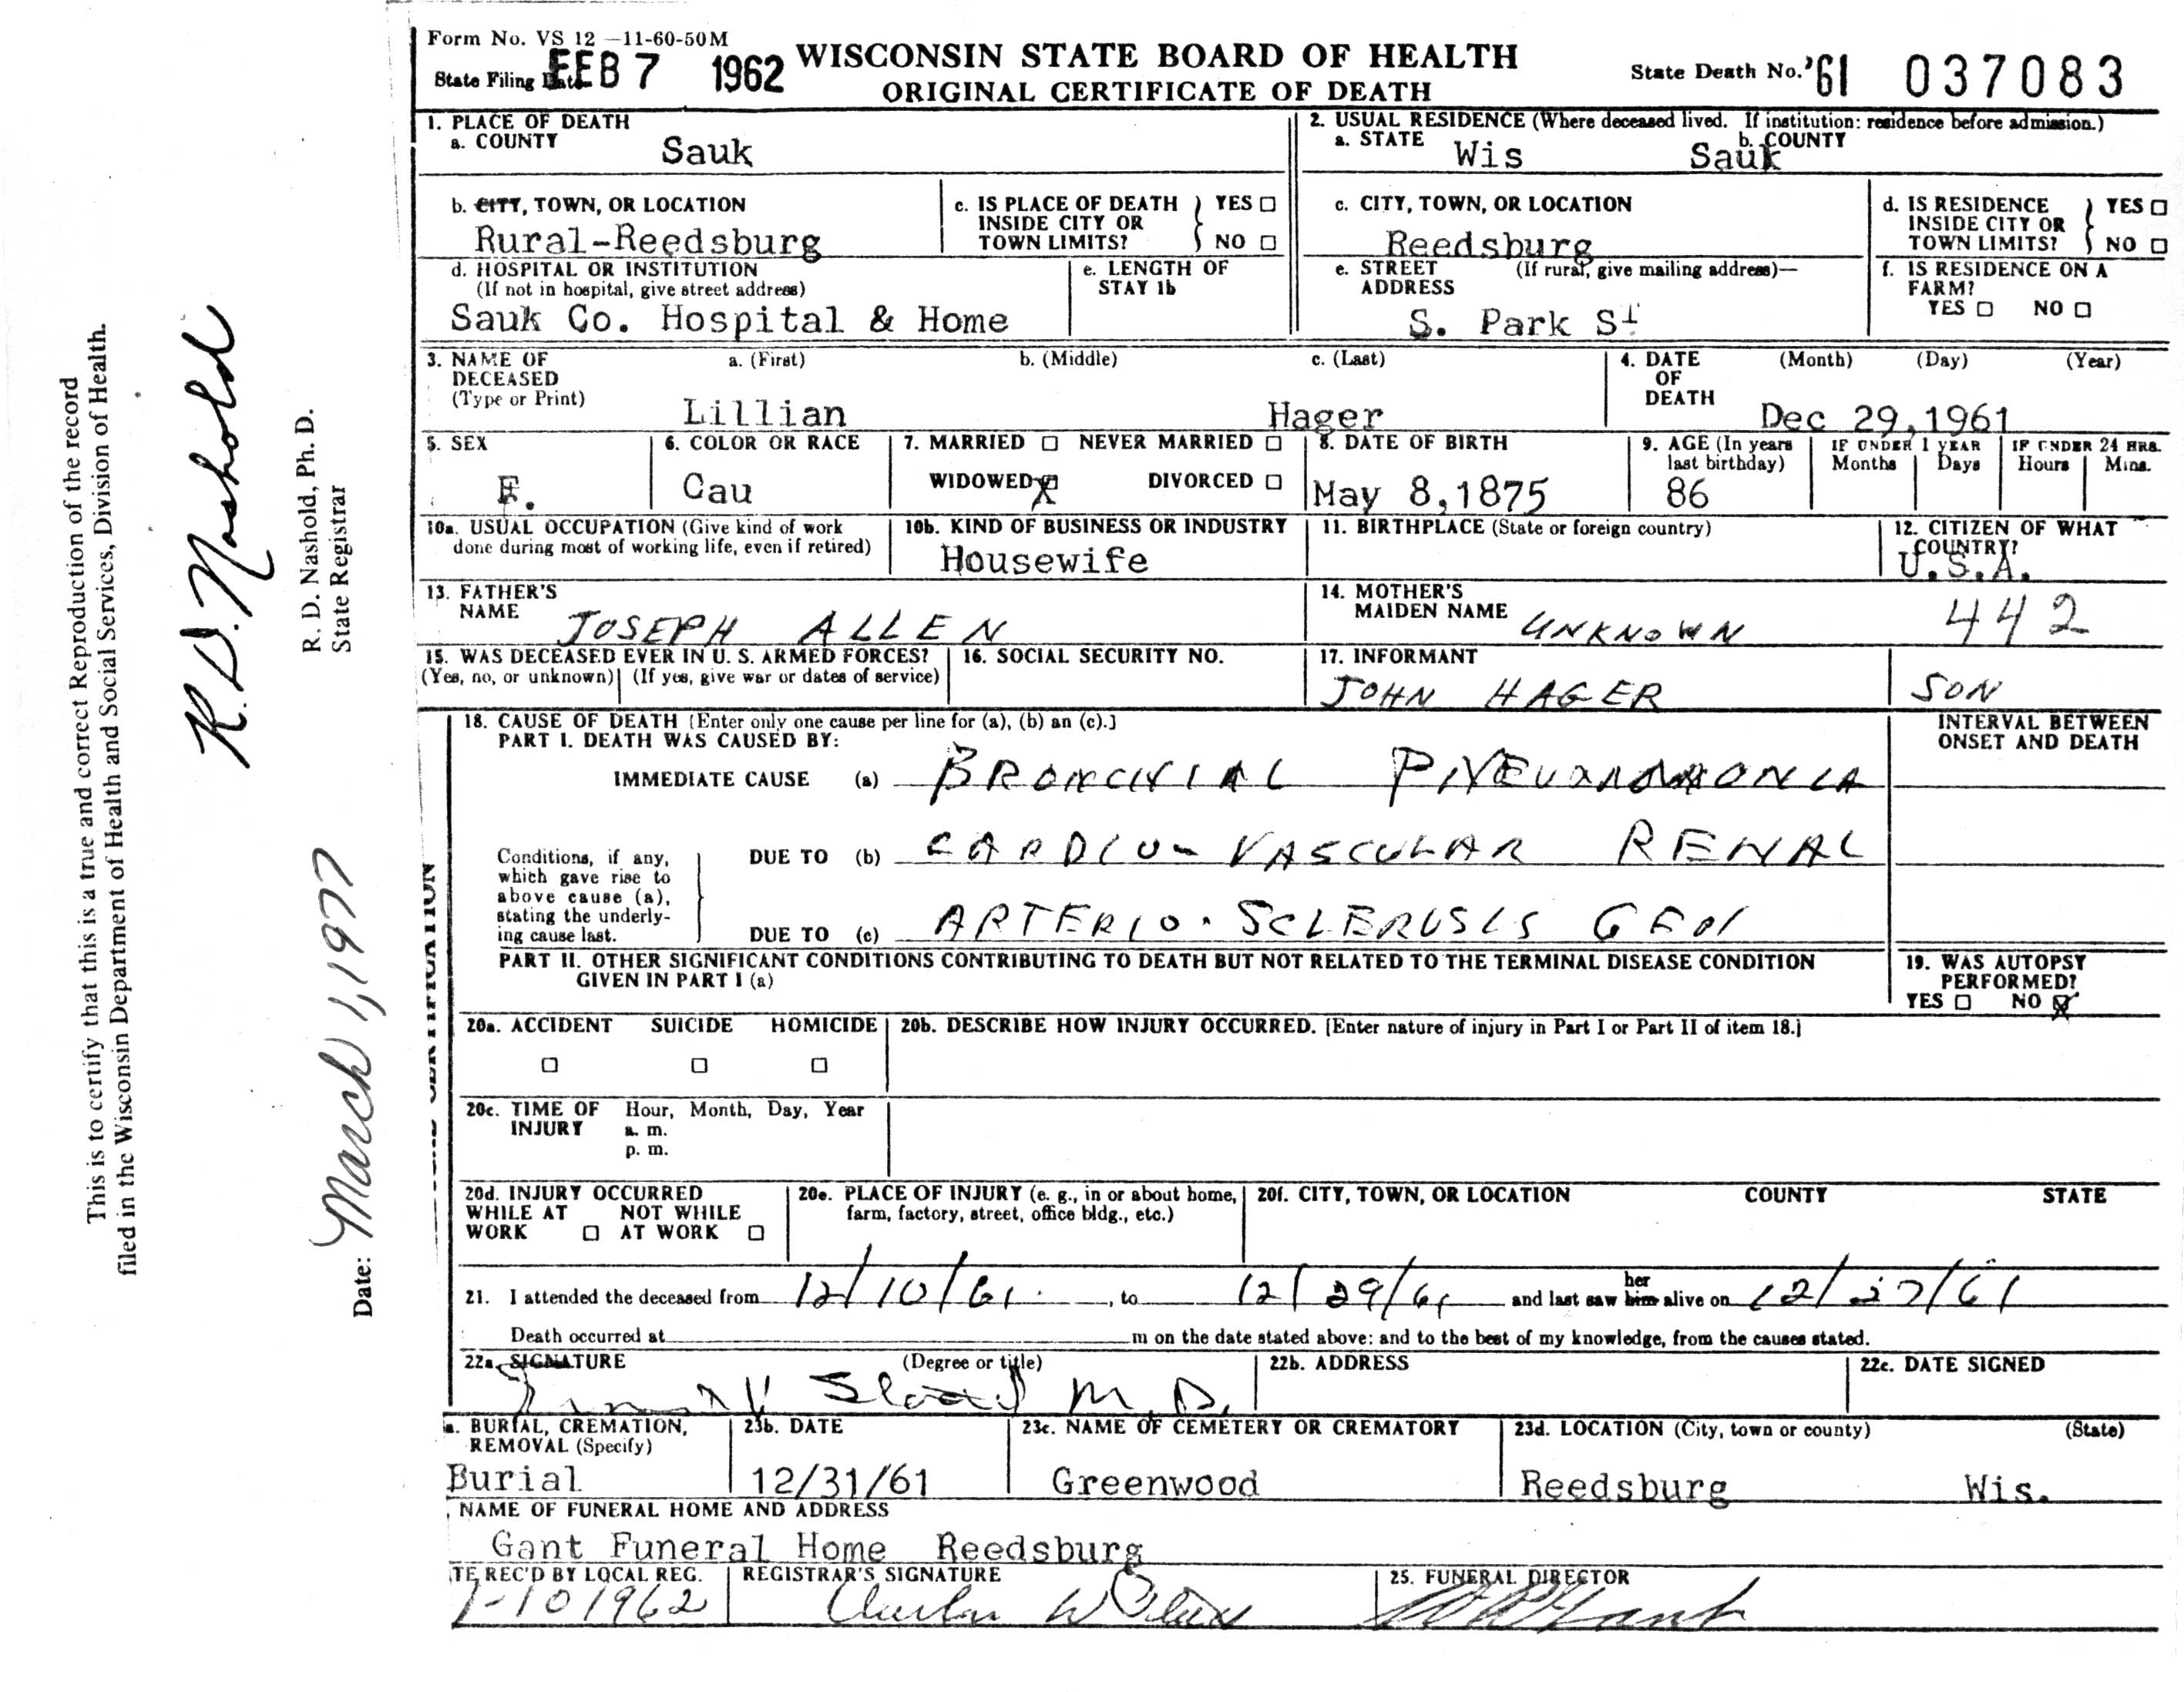 Form No. VS 12 —11-60-50M
State Filing Date FEB 7 1962
WISCONSIN STATE BOARD OF HEALTH
ORIGINAL CERTIFICATE OF DEATH
State Death No. '61 037083
1. PLACE OF DEATH
a. COUNTY
Sauk
2. USUAL RESIDENCE (Where deceased lived. If institution: residence before admission.)
a. STATE Wis b. COUNTY Sauk
b. CITY, TOWN, OR LOCATION
Rural-Reedsburg
c. IS PLACE OF DEATH INSIDE CITY OR TOWN LIMITS? YES NO
c. CITY, TOWN, OR LOCATION
Reedsburg
d. IS RESIDENCE INSIDE CITY OR TOWN LIMITS? YES NO
d. HOSPITAL OR INSTITUTION
(If not in hospital, give street address)
Sauk Co. Hospital & Home
e. LENGTH OF STAY 1b
e. STREET ADDRESS (If rural, give mailing address)—
S. Park St
f. IS RESIDENCE ON A FARM?
YES NO
3. NAME OF DECEASED
(Type or Print)
a. (First) b. (Middle) c. (Last)
Lillian Hager
4. DATE OF DEATH (Month) (Day) (Year)
Dec 29,1961
5. SEX
F.
6. COLOR OR RACE
Cau
7. MARRIED NEVER MARRIED
WIDOWED X DIVORCED
8. DATE OF BIRTH
May 8,1875
9. AGE (In years last birthday)
86
IF UNDER 1 YEAR
Months Days
IF UNDER 24 HRS.
Hours Mins.
10a. USUAL OCCUPATION (Give kind of work
done during most of working life, even if retired)
10b. KIND OF BUSINESS OR INDUSTRY
Housewife
11. BIRTHPLACE (State or foreign country)
12. CITIZEN OF WHAT COUNTRY?
U.S.A.
13. FATHER'S NAME
JOSEPH ALLEN
14. MOTHER'S MAIDEN NAME
UNKNOWN
442
15. WAS DECEASED EVER IN U. S. ARMED FORCES?
(Yes, no, or unknown) (If yes, give war or dates of service)
16. SOCIAL SECURITY NO.
17. INFORMANT
JOHN HAGER SON
18. CAUSE OF DEATH [Enter only one cause per line for (a), (b) an (c).]
PART I. DEATH WAS CAUSED BY:
INTERVAL BETWEEN
ONSET AND DEATH
IMMEDIATE CAUSE (a) BRONCHIAL
Conditions, if any,
which gave rise to
above cause (a),
stating the underly-
ing cause last.
DUE TO (b) CARDIO-VASCULAR RENAL
DUE TO (c) ARTERIO-SCLEROSIS
PART II. OTHER SIGNIFICANT CONDITIONS CONTRIBUTING TO DEATH BUT NOT RELATED TO THE TERMINAL DISEASE CONDITION
GIVEN IN PART I (a)
19. WAS AUTOPSY PERFORMED?
YES NO X
20a. ACCIDENT SUICIDE HOMICIDE
20b. DESCRIBE HOW INJURY OCCURRED. [Enter nature of injury in Part I or Part II of item 18.]
20c. TIME OF INJURY Hour, Month, Day, Year
a. m.
p. m.
20d. INJURY OCCURRED
WHILE AT WORK NOT WHILE AT WORK
20e. PLACE OF INJURY (e. g., in or about home,
farm, factory, street, office bldg., etc.)
20f. CITY, TOWN, OR LOCATION COUNTY STATE
21. I attended the deceased from 12/10/61, to 12/29/61 and last saw her him alive on 12/27/61
Death occurred at m on the date stated above: and to the best of my knowledge, from the causes stated.
22a. SIGNATURE (Degree or title)
M.D.
22b. ADDRESS
22c. DATE SIGNED
a. BURIAL, CREMATION,
REMOVAL (Specify)
Burial
23b. DATE
12/31/61
23c. NAME OF CEMETERY OR CREMATORY
Greenwood
23d. LOCATION (City, town or county) (State)
Reedsburg Wis.
NAME OF FUNERAL HOME AND ADDRESS
Gant Funeral Home Reedsburg
TE REC'D BY LOCAL REG.
1-10 1962
REGISTRAR'S SIGNATURE
25. FUNERAL DIRECTOR
This is to certify that this is a true and correct Reproduction of the record
filed in the Wisconsin Department of Health and Social Services, Division of Health.
R.D. Nashold
R. D. Nashold, Ph. D.
State Registrar
Date: March 1, 1977